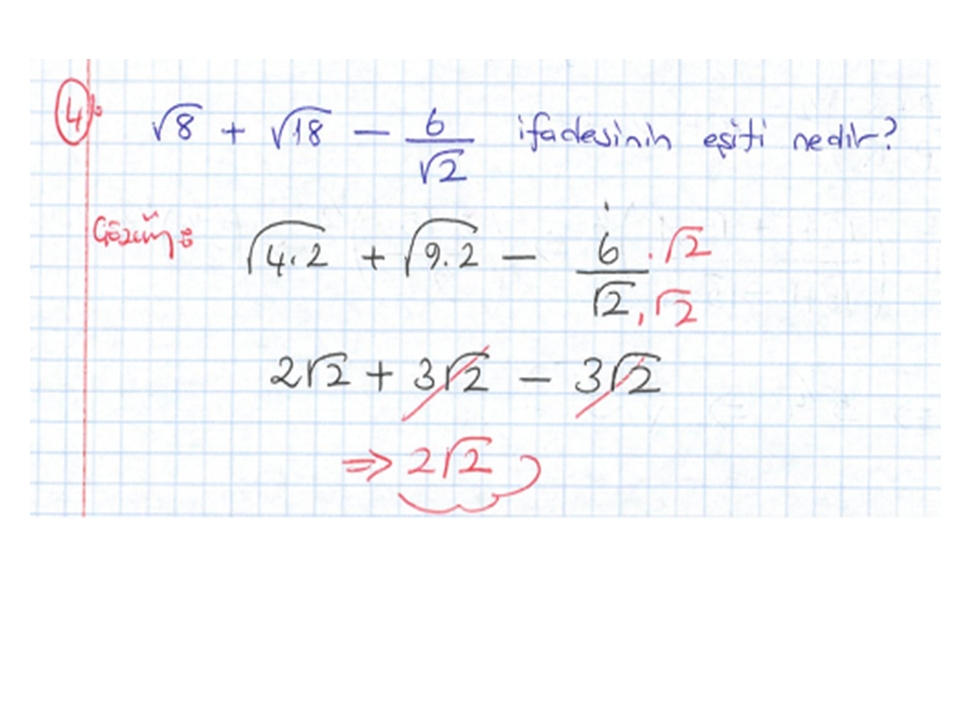 4: √8 + √18 − 6/√2 ifadesinin eşiti nedir?
Çözüm: √4.2 + √9.2 − 6.√2/√2.√2
2√2 + 3√2 − 3√2
⇒ 2√2